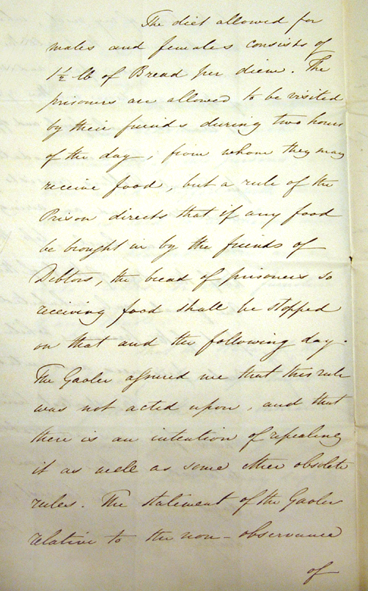 The diet allowed for
males and females consists of
1½ lb of Bread per diem. The
prisoners are allowed to be visited
by their friends during two hours
of the day, from whom they may
receive food, but a rule of the
Prison directs that if any food
be brought in by the friends of
Debtors, the bread of prisoners so
receiving food shall be stopped
on that and the following day.
The Gaoler assured me that this rule
was not acted upon, and that
there is an intention of repealing
it as well as some other obsolete
rules. The statement of the Gaoler
relative to the non-observance
of